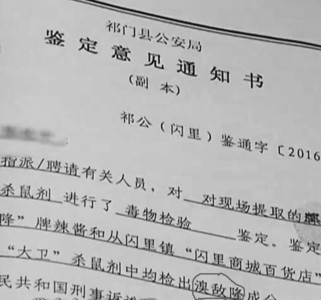 祁门县公安局
鉴定意见通知书
(副 本)
祁公(闪里)鉴通字〔2016
指派/聘请有关人员，对 对现场提取的
杀鼠剂 进行了 毒物检验 鉴定。鉴定
隆”牌辣酱和从闪里镇“闪里商城百货店”
“大卫”杀鼠剂中均检出溴敌隆成
民共和国刑事诉讼